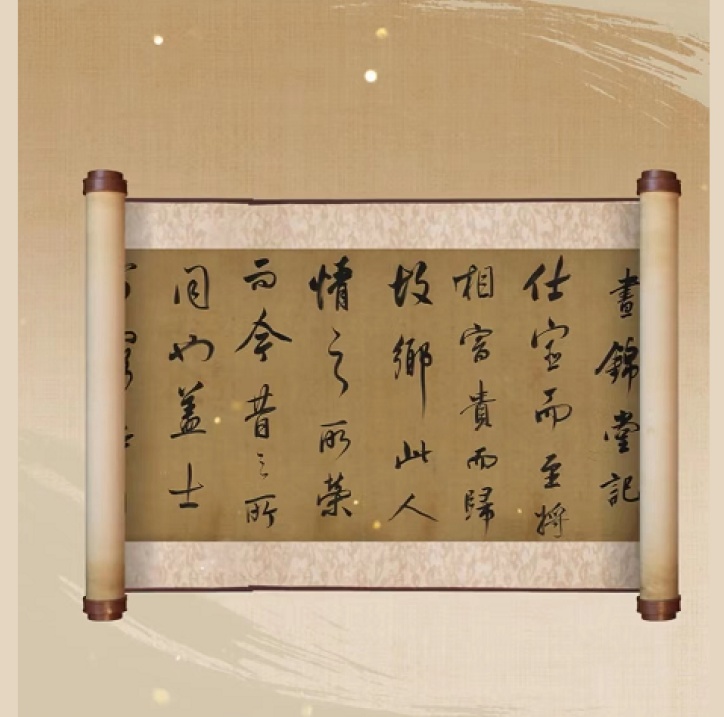 晝錦堂記
仕宦而至將
相富貴而歸
故鄉此人
情之所榮
而今昔之所
同也蓋士